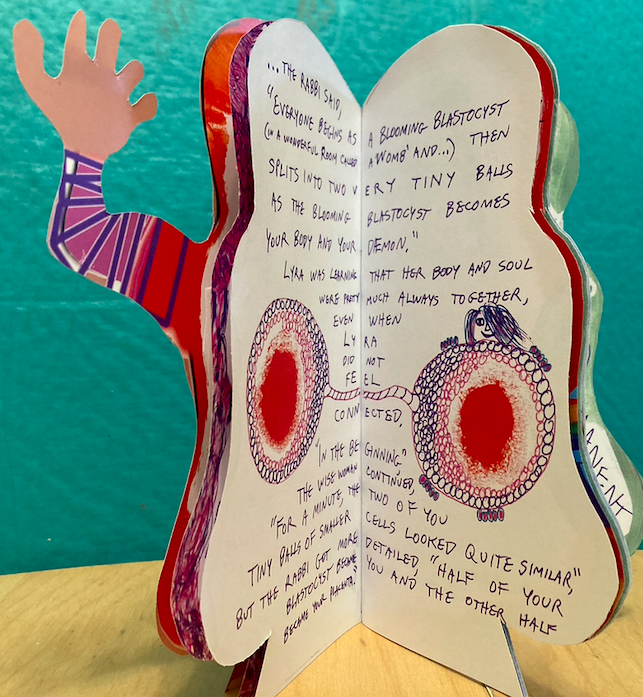 ...THE RABBI SAID,
"EVERYONE BEGINS AS A BLOOMING BLASTOCYST
(IN A WONDERFUL ROOM CALLED A 'WOMB' AND...) THEN
SPLITS INTO TWO VERY TINY BALLS
AS THE BLOOMING BLASTOCYST BECOMES
YOUR BODY AND YOUR DÆMON."
LYRA WAS LEARNING THAT HER BODY AND SOUL
WERE PRETTY MUCH ALWAYS TOGETHER,
EVEN WHEN
LYRA
DID NOT
FEEL
CONNECTED.
"IN THE BEGINNING,"
THE WISE WOMAN CONTINUED,
"FOR A MINUTE, THE TWO OF YOU
TINY BALLS OF SMALLER CELLS LOOKED QUITE SIMILAR,"
BUT THE RABBI GOT MORE DETAILED, "HALF OF YOUR
BLASTOCYST BECAME YOU AND THE OTHER HALF
BECAME YOUR PLACENTA."
ANENT